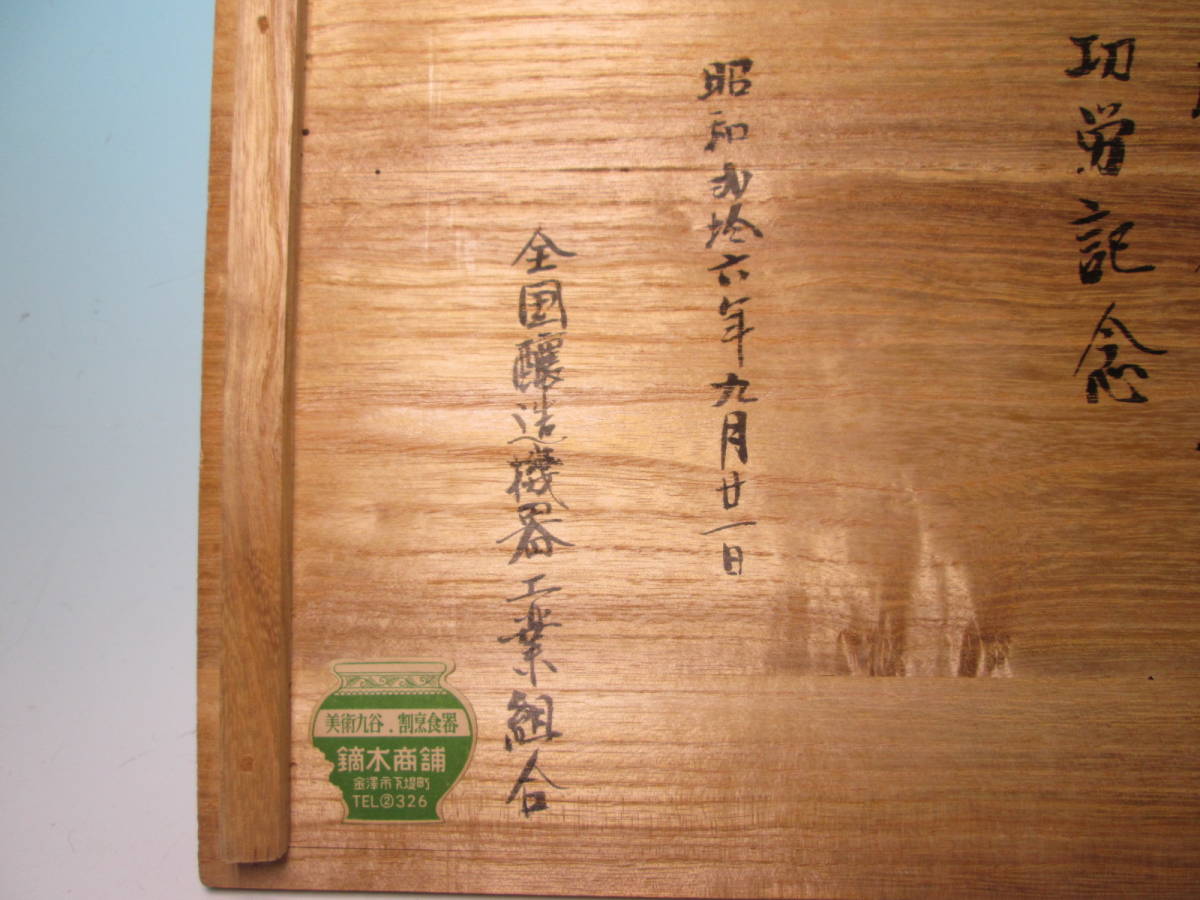 功労記念
昭和弐拾六年九月廿一日
全国釀造機器工業組合
美術九谷．割烹食器
鏑木商舗
金澤市下堤町
TEL②326